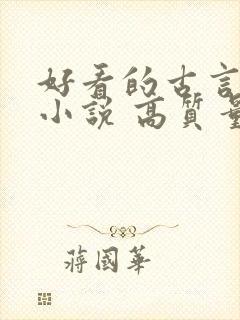 好看的古言
小說 高質量
蔣國華